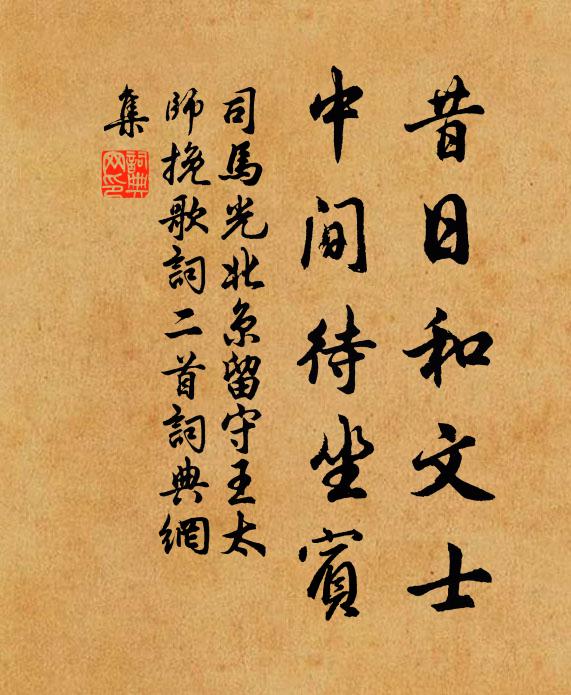 昔日和文士
中間待坐賓
司馬光北京留守王太
師挽歌詞二首詞典網
集
詞典網印